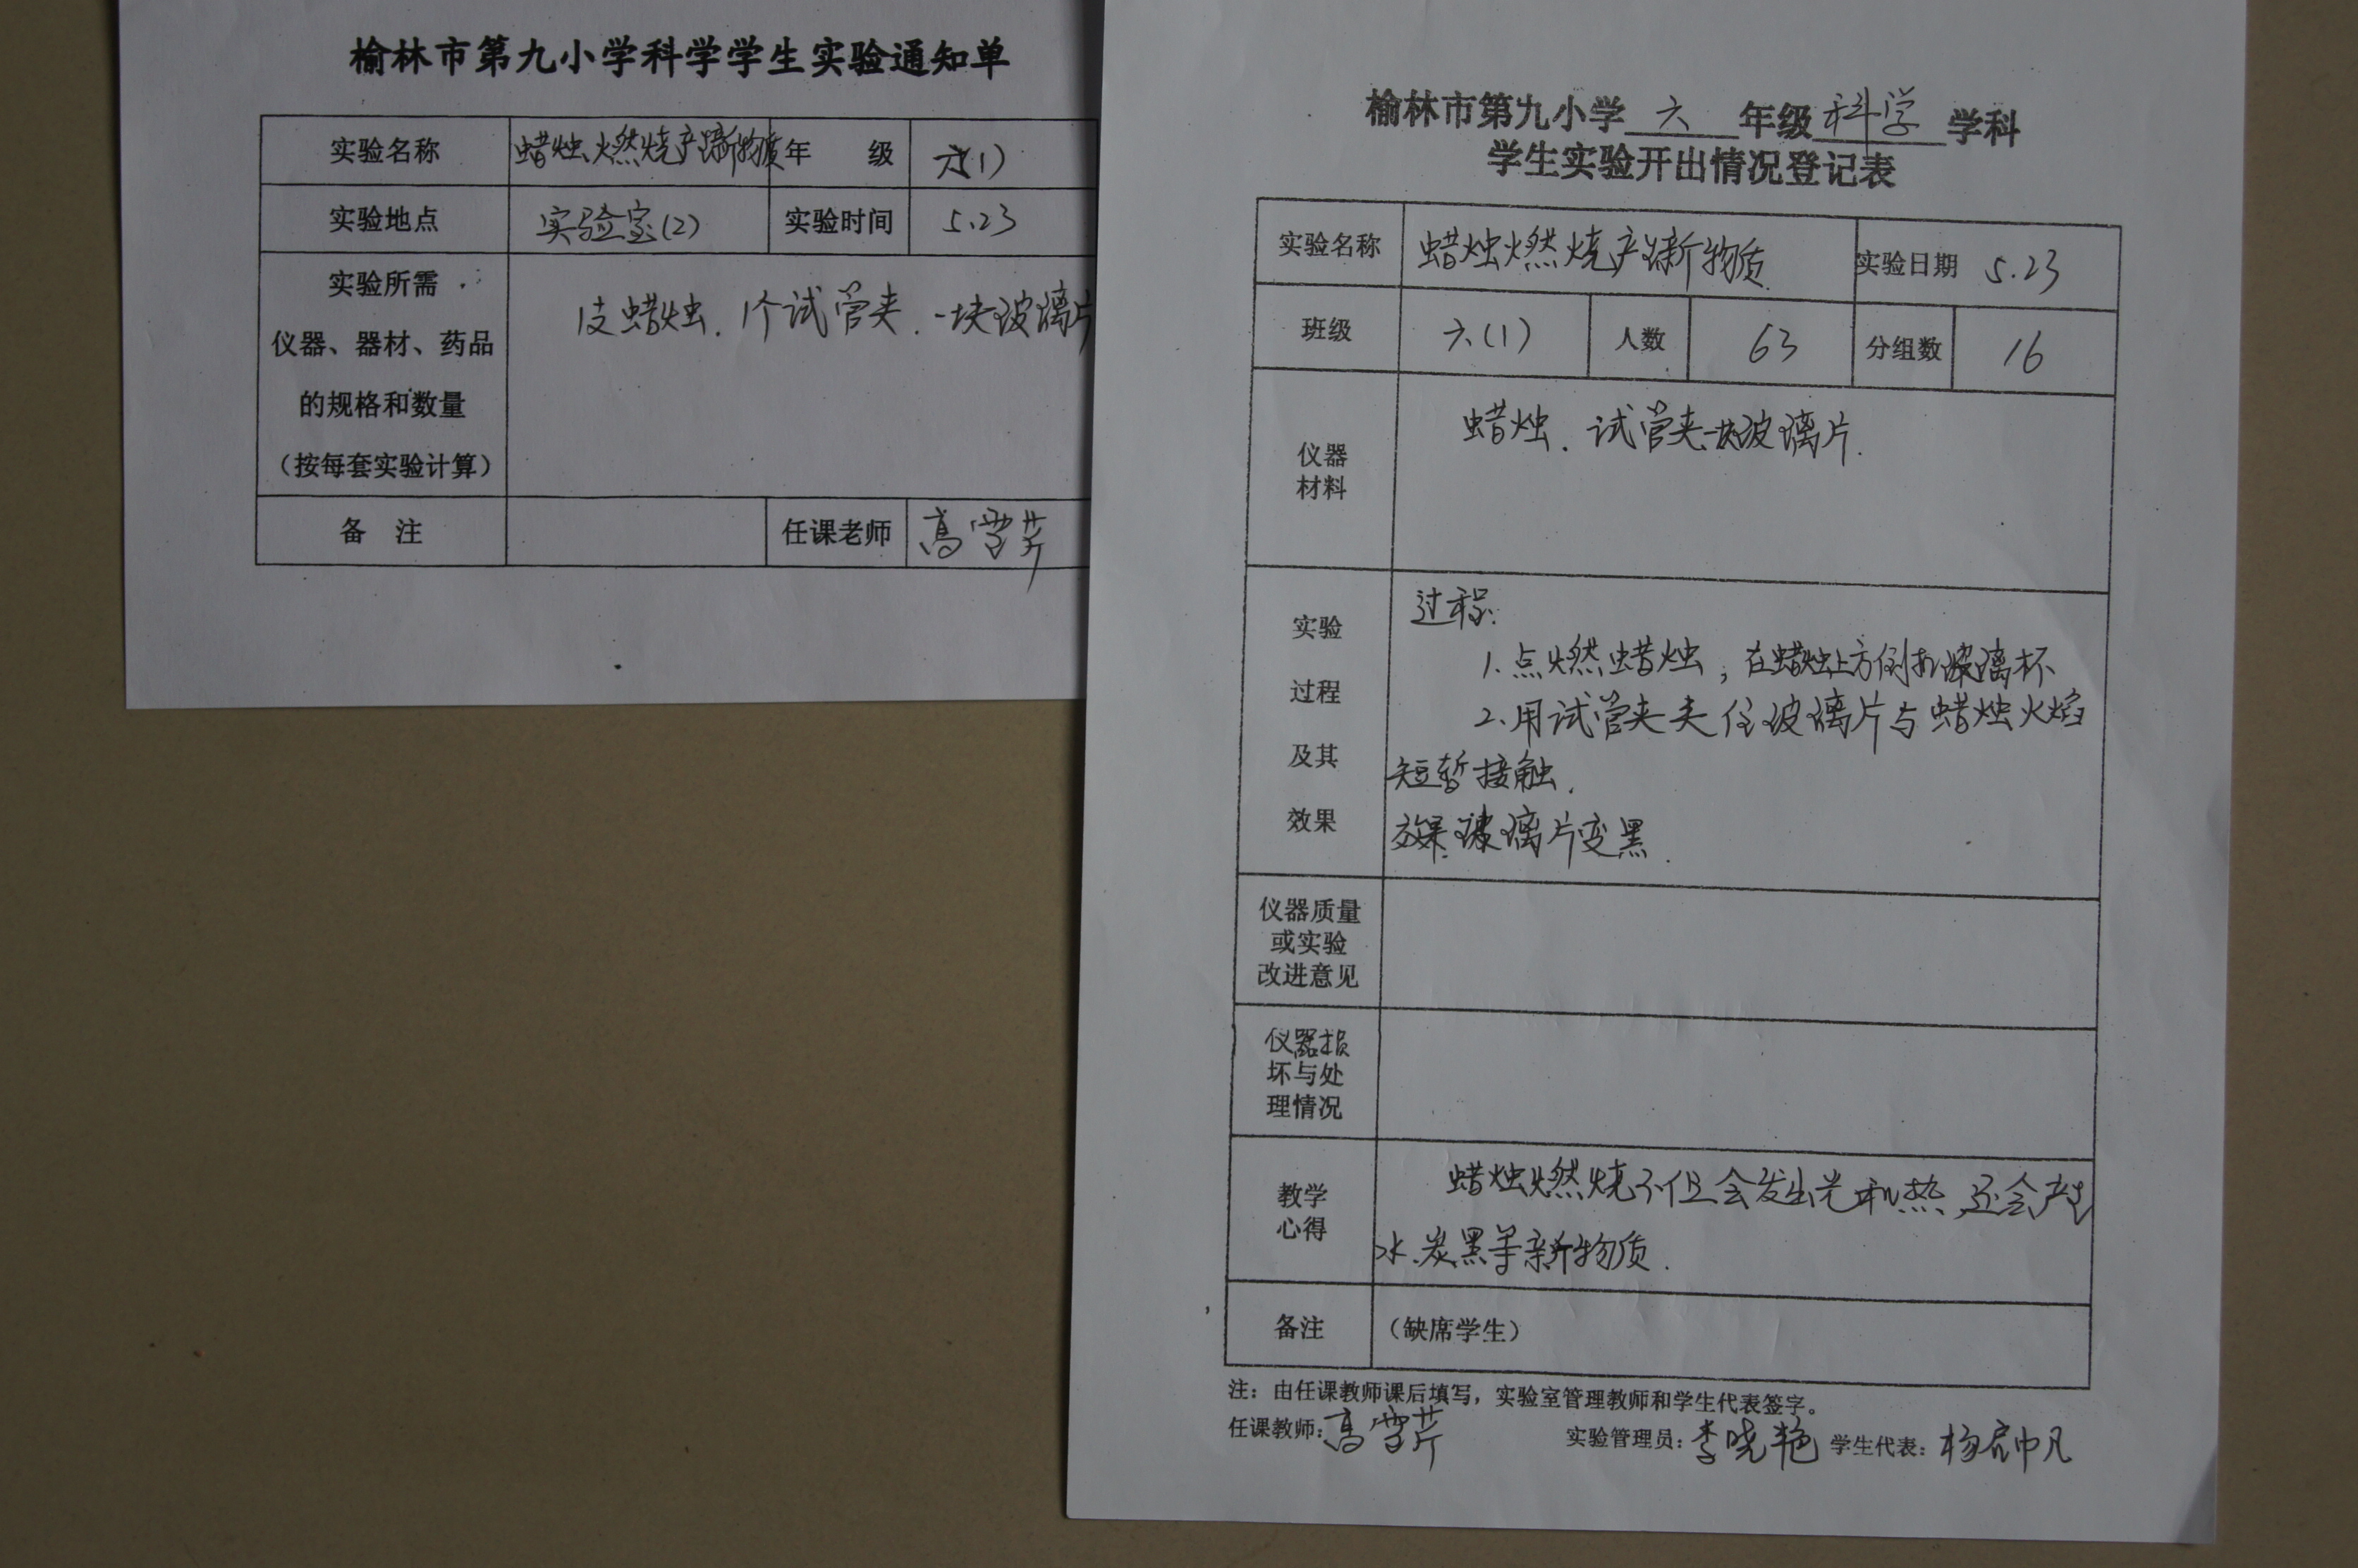 榆林市第九小学科学学生实验通知单
实验名称 蜡烛燃烧产生新物质 年 级 六(1)
实验地点 实验室(2) 实验时间 5.23
实验所需
仪器、器材、药品
的规格和数量
(按每套实验计算)
1支蜡烛.1个试管夹.一块玻璃片
备 注 任课老师 高雪芹
榆林市第九小学 六 年级 科学 学科
学生实验开出情况登记表
实验名称 蜡烛燃烧产生新物质. 实验日期 5.23
班级 六(1) 人数 63 分组数 16
仪器
材料
蜡烛.试管夹.一块玻璃片.
实验
过程
及其
效果
过程:
1.点燃蜡烛,在蜡烛上方倒扣玻璃杯
2.用试管夹夹住玻璃片与蜡烛火焰
短暂接触.
效果:玻璃片变黑.
仪器质量
或实验
改进意见
仪器损
坏与处
理情况
教学
心得
蜡烛燃烧不但会发出光和热,还会产生
水.炭黑等新物质.
备注 (缺席学生)
注:由任课教师课后填写,实验室管理教师和学生代表签字。
任课教师:高雪芹 实验管理员:李晓艳 学生代表:杨